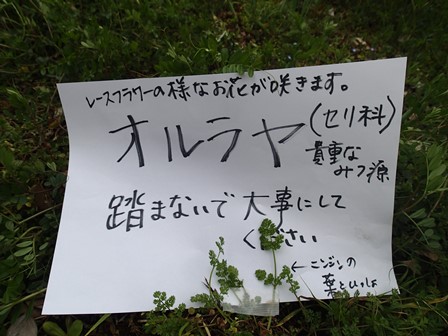 レースフラワーの様なお花が咲きます。
オルラヤ(セリ科)
貴重な
みつ源
踏まないで大事にして
ください
←ニンジンの
葉とひっは